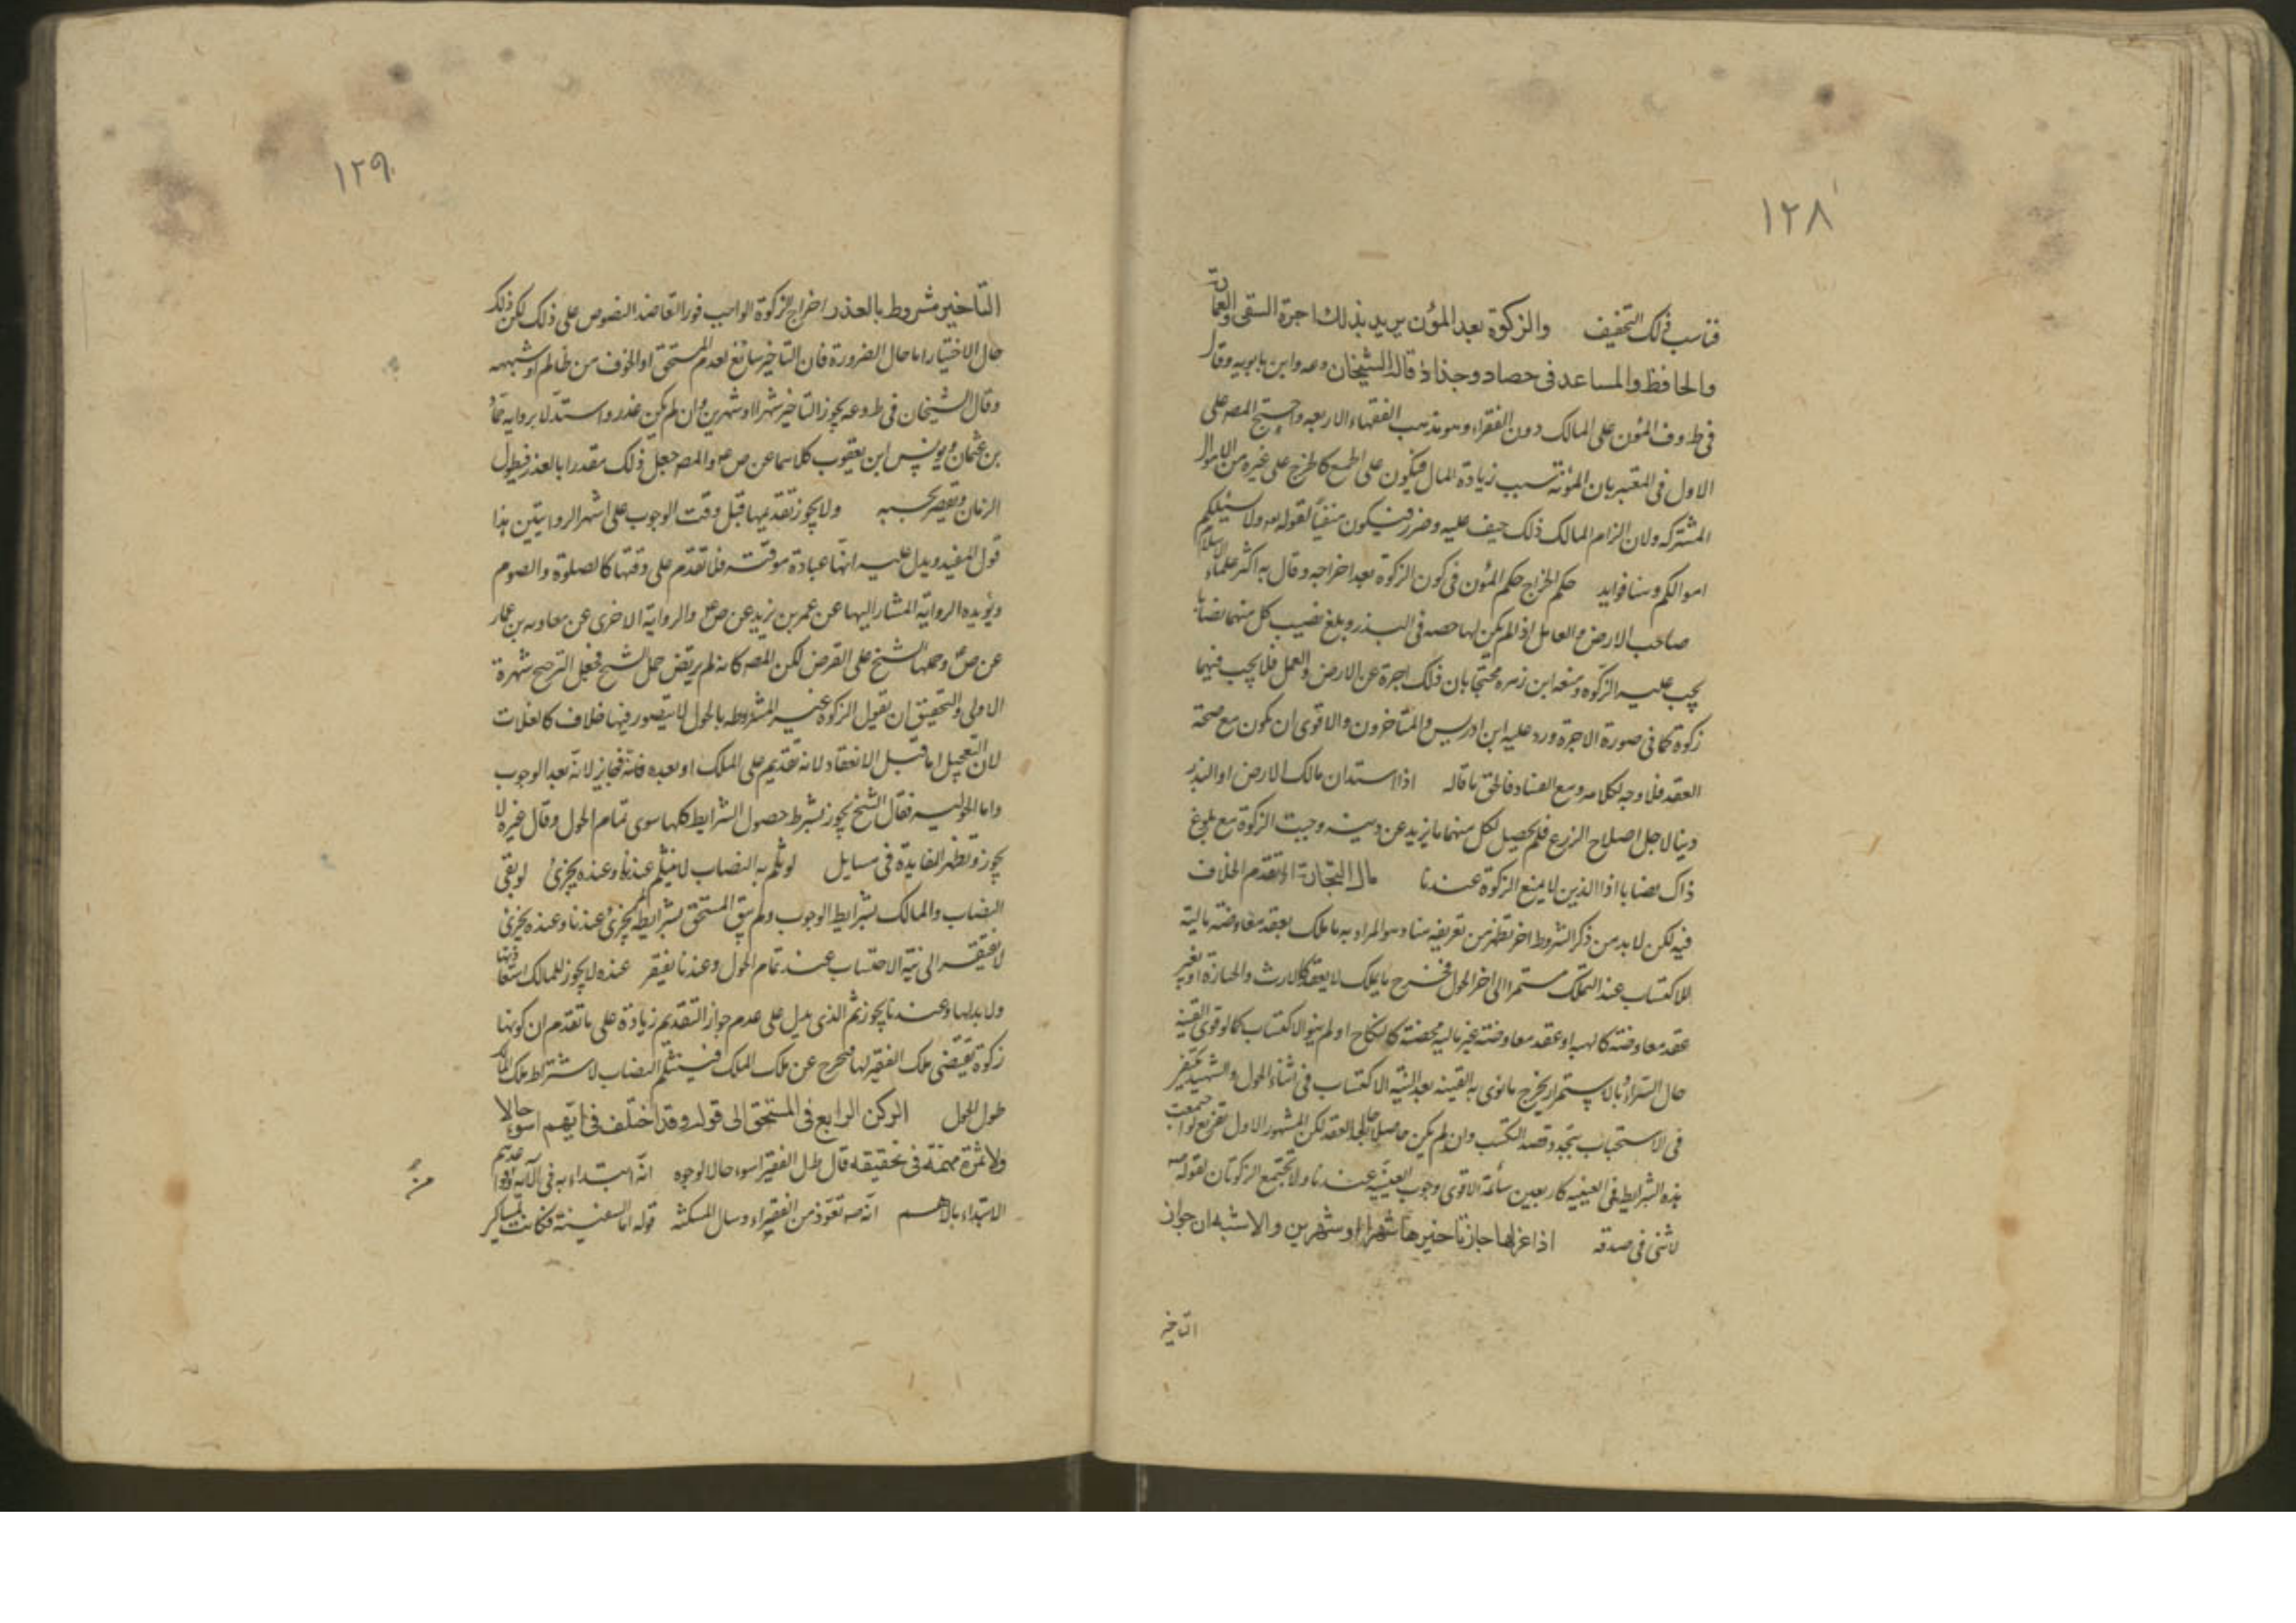 ١٢٨
فناسب ذلك التخفيف والزكوة بعد المؤن يريد بذلك اجرة السقى والعمارة
والحافظ والمساعد فى حصاد وجذاذ قاله الشيخان وعه وابن بابويه وقال
فى ط وف المؤن على المالك دون الفقراء وهو مذهب الفقهاء الاربعه واحتج المص على
الاول فى المعتبر بان المؤنة سبب زيادة المال فيكون على الجميع كالخرج على غيره من الاموال
المشتركه ولان الزام المالك ذلك حيف عليه وضرر فيكون منفياً لقوله تع ولا يسئلكم
اموالكم وهنا فوايد حكم الخراج حكم المؤن فى كون الزكوة بعد اخراجه وقال به اكثر علماء الاسلام
صاحب الارض والعامل اذا لم يكن لها حصه فى البذر وبلغ نصيب كل منهما نصابا
يجب عليه الزكوة ومنعه ابن زهره محتجا بان ذلك اجرة عن الارض والعمل فلا يجب فيهما
زكوة كما فى صورة الاجرة ورد عليه ابن ادريس والمتاخرون والاقوى ان يكون مع صحة
العقد فلا وجه لكلامه ومع الفساد فالحق ما قاله اذا استدان مالك الارض او البذر
دينا لاجل اصلاح الزرع فلم يحصل لكل منهما ما يزيد عن دينه وجبت الزكوة مع بلوغ
ذاك نصابا اذا الدين لا يمنع الزكوة عندنا مال التجارة او تقدم الخلاف
فيه لكن لابد من ذكر الشروط اخر تظهر من تعريفه هنا وهو المراد به ما ملك بعقد معاوضة مالية
للاكتساب عند التملك مستمرا الى اخر الحول فخرج ما يملك لا بعقد كالارث والحيازة او بغير
عقد معاوضة كالهبه او عقد معاوضة غير ماليه محضة كالنكاح او لم ينو الاكتساب كما لو قوى القنية
حال الشراء وبالاستمرار يخرج ما نوى به القنيه بعد النية الاكتساب فى اثناء الحول والشهيد يكتفى
فى الاستحباب بتجدد قصد التكسب وان لم يكن حاصلا حال العقد لكن المشهور الاول تفريع لو اجتمعت
هذه الشرايط فى العينيه كاربعين سائمة الاقوى وجوب العينيه عندنا ولا تجتمع الزكوتان لقوله ص
لاثنى فى صدقه اذا عزلها جاز تاخيرها شهرا او شهرين والاشبه ان جواز
التاخير
١٢٩
التاخير مشروط بالعذر اخراج الزكوة الواجب فورا لتعاضد النصوص على ذلك لكن ذلك
حال الاختيار اما حال الضرورة فان التاخير سائغ لعدم المستحق او الخوف من ظالم او شبهه
وقال الشيخان فى ط وعه يجوز التاخير شهرا او شهرين وان لم يكن عذر واستدلا برواية حماد
بن عثمان ويونس ابن يعقوب كلاهما عن ص ع والمص جعل ذلك مقدرا بالعذر فيطول
الزمان ويقصر بحسبه ولا يجوز تقديمها قبل وقت الوجوب على اشهر الروايتين هذا
قول المفيد ويدل عليه انها عبادة موقتة فلا تقدم على وقتها كالصلوة والصوم
ويؤيده الرواية المشار اليها عن عمر بن يزيد عن ص ع والرواية الاخرى عن معاويه بن عمار
عن ص ع وحملها الشيخ على القرض لكن المص كانه لم يرتض حمل الشيخ فجعل الترجيح شهرة
الاولى والتحقيق ان نقول الزكوة غير المشروطه بالحول لا يتصور فيها خلاف كالغلات
لان التعجيل اما قبل الانعقاد لانه تقديم على الملك او بعده فانه فجايز لانه بعد الوجوب
واما الحوليه فقال الشيخ يجوز بشرط حصول الشرايط كلها سوى تمام الحول وقال غيره لا
يجوز وتظهر الفايدة فى مسايل لو تم به النصاب لا يتم عندنا وعنده يجزئ لو بقى
النصاب والمالك بشرايط الوجوب ولم يبق المستحق بشرايطه لم يجزئ عندنا وعنده يجزئ
لا يفتقر الى نية الاحتساب عند تمام الحول وعندنا يفتقر عنده لا يجوز للمالك استعادتها
ولا بدلها وعندنا يجوز ثم الذى يدل على عدم جواز التقديم زيادة على ما تقدم ان كونها
زكوة يقتضى ملك الفقير لها فتخرج عن ملك المالك فينثلم النصاب لاشتراط ملك المالك
طول الحول الركن الرابع فى المستحق الى قوله وقد اختلف فى ايهم اسوء حالا
ولا ثمرة مهمة فى تحقيقه قال ط بل الفقير اسوء حالا لوجوه انه ابتداء به فى الآية وعادتهم
الابتداء بالاهم انه ص تعوذ من الفقر وسال المسكنة قوله اما السفينة فكانت لمساكين